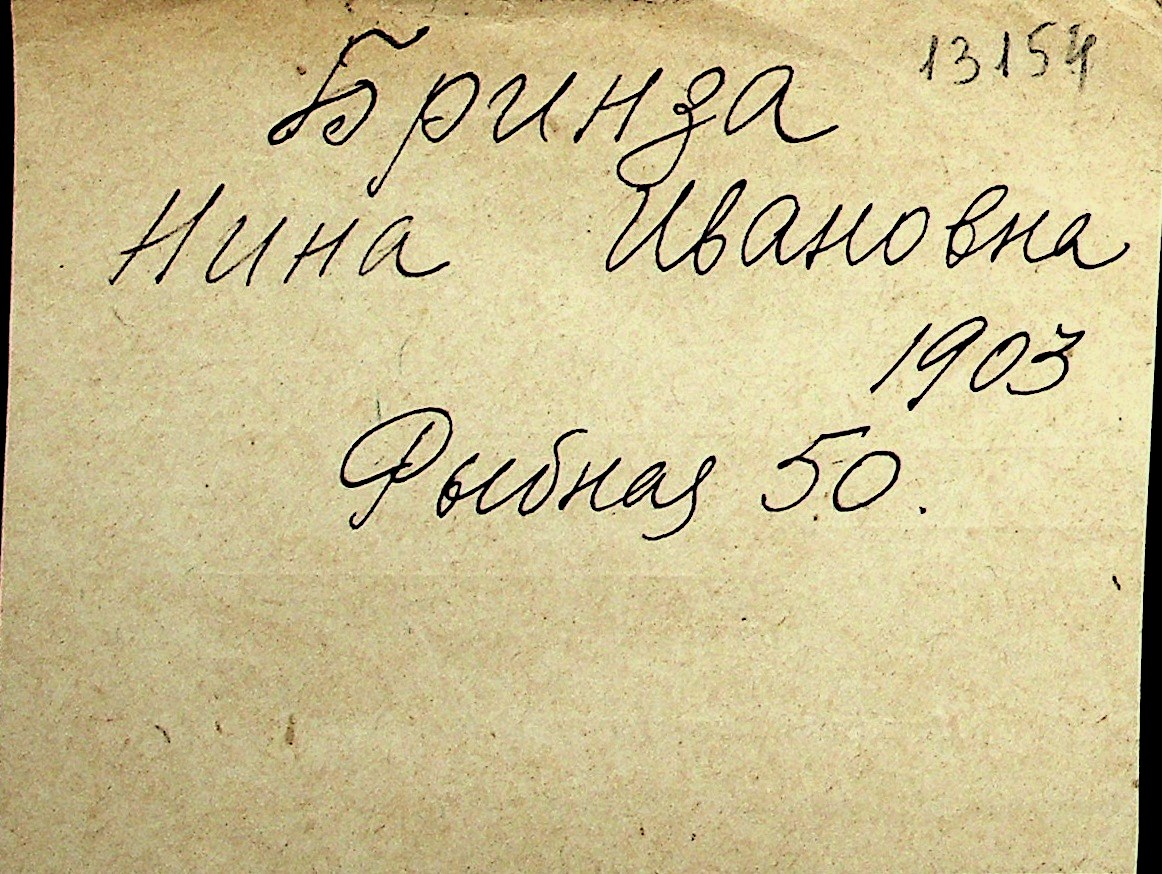 13154
Бринза
Нина Ивановна
1903
Рыбная 50.